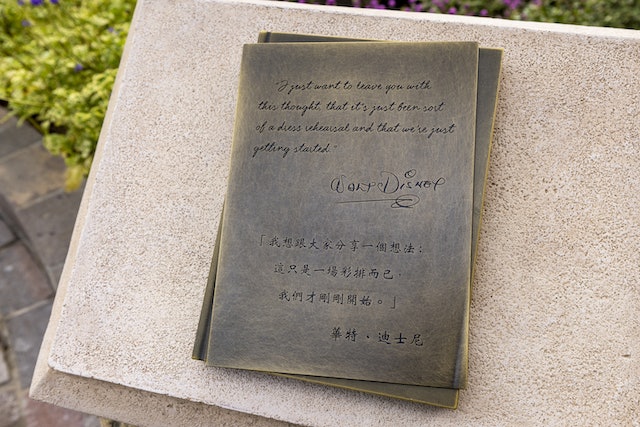 "I just want to leave you with
this thought, that it's just been sort
of a dress rehearsal and that we're just
getting started."
Walt Disney
「我想跟大家分享一個想法：
這只是一場彩排而已，
我們才剛剛開始。」
華特・迪士尼